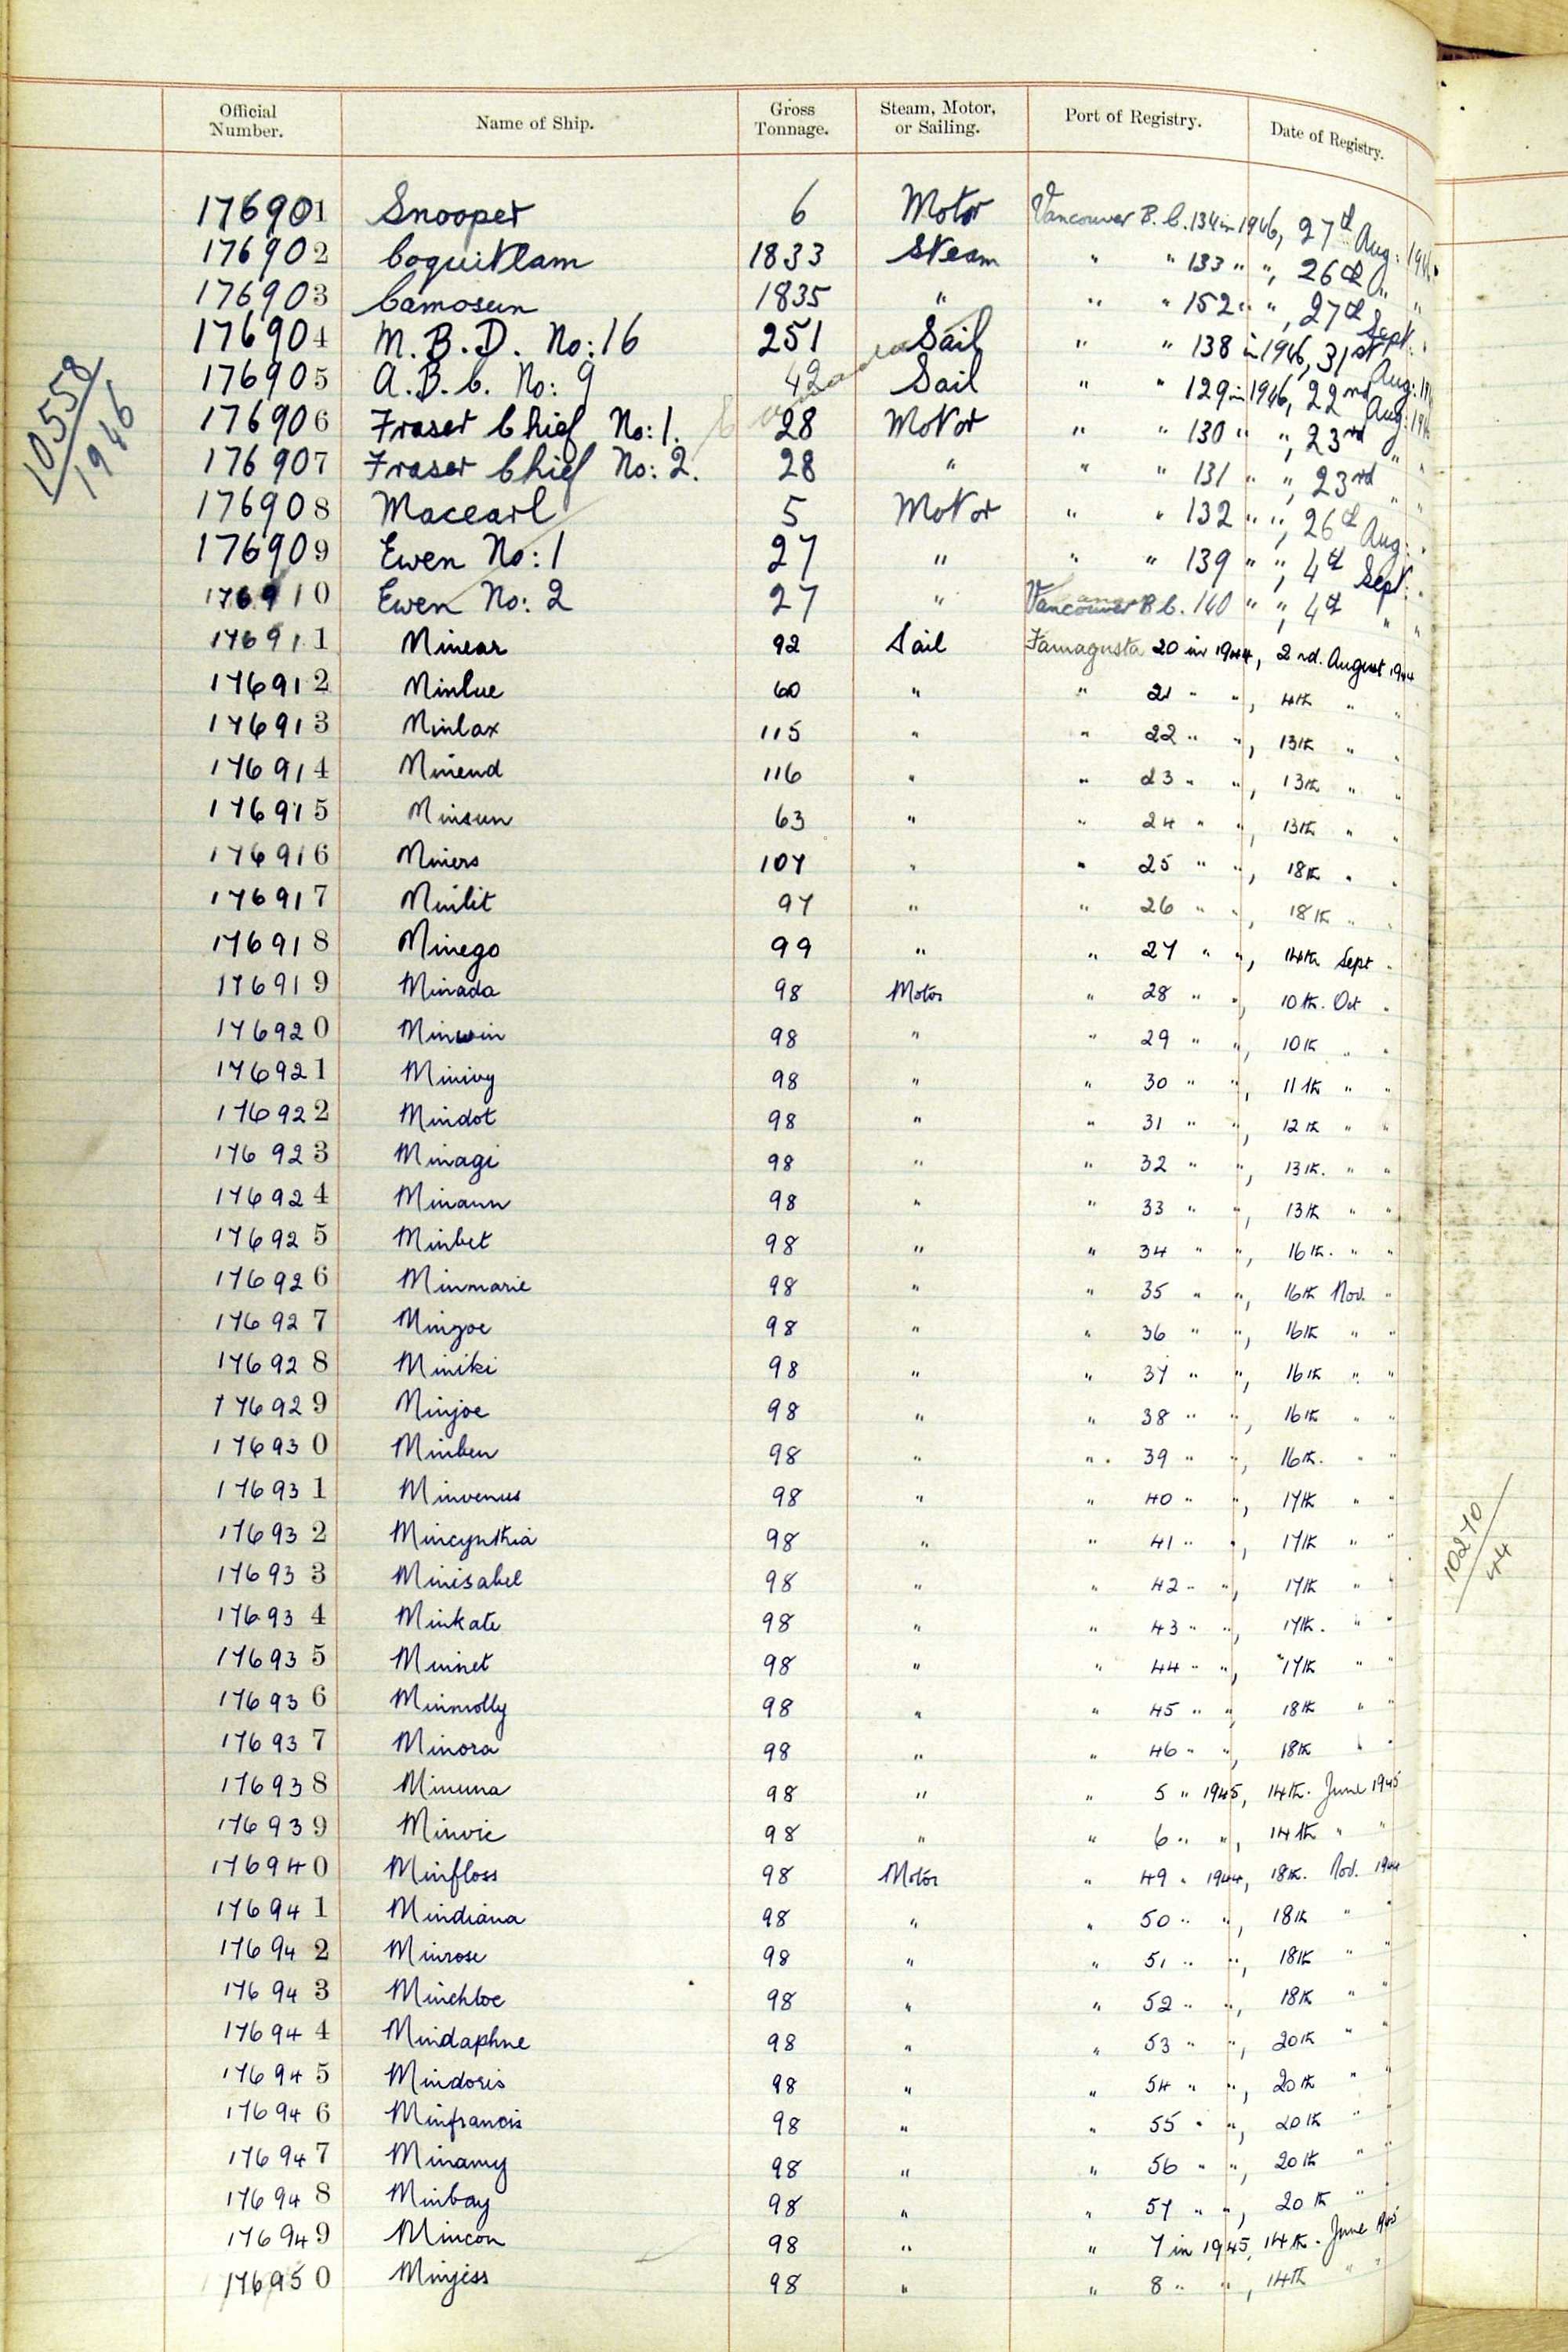 Official Number. Name of Ship. Gross Tonnage. Steam, Motor, or Sailing. Port of Registry. Date of Registry.
176901 Snooper 6 Motor Vancouver B.C. 134 in 1946, 27th Aug: 1946
176902 Coquitlam 1833 Steam " " 133 " ", 26th " "
176903 Camosun 1835 " " " 152 " ", 27th Sept. "
176904 M.B.D. No: 16 251 Sail " " 138 in 1946, 31st Aug: 19
176905 A.B.C. No: 9 42 Sail " " 129 in 1946, 22nd Aug: 19
176906 Fraser Chief No: 1. 28 Motor " " 130 " ", 23rd " "
176907 Fraser Chief No: 2. 28 " " " 131 " ", 23rd " "
176908 Macearl 5 Motor " " 132 " ", 26th Aug: "
176909 Ewen No: 1 27 " " " 139 " ", 4th Sept: "
176910 Ewen No: 2 27 " Vancouver B.C. 140 " ", 4th " "
176911 Minear 92 Sail Famagusta 20 in 1944, 2nd. August 1944
176912 Minlue 60 " " 21 " ", 4th " "
176913 Minlax 115 " " 22 " ", 13th " "
176914 Minend 116 " " 23 " ", 13th " "
176915 Minsun 63 " " 24 " ", 13th " "
176916 Miners 107 " " 25 " ", 18th " "
176917 Minlit 97 " " 26 " ", 18th " "
176918 Minego 99 " " 27 " ", 14th Sept "
176919 Minada 98 Motor " 28 " ", 10th. Oct "
176920 Minwin 98 " " 29 " ", 10th " "
176921 Minivy 98 " " 30 " ", 11th " "
176922 Mindot 98 " " 31 " ", 12th " "
176923 Minagi 98 " " 32 " ", 13th. " "
176924 Minann 98 " " 33 " ", 13th " "
176925 Minbet 98 " " 34 " ", 16th. " "
176926 Minmarie 98 " " 35 " ", 16th Nov. "
176927 Minzoe 98 " " 36 " ", 16th " "
176928 Miniki 98 " " 37 " ", 16th " "
176929 Minjoe 98 " " 38 " ", 16th " "
176930 Minben 98 " " 39 " ", 16th. " "
176931 Minvenus 98 " " 40 " ", 17th " "
176932 Mincynthia 98 " " 41 " ", 17th " "
176933 Minisabel 98 " " 42 " ", 17th " "
176934 Minkate 98 " " 43 " ", 17th. " "
176935 Minnet 98 " " 44 " ", 17th " "
176936 Minmolly 98 " " 45 " ", 18th " "
176937 Minora 98 " " 46 " ", 18th " "
176938 Minuna 98 " " 5 " 1945, 14th. June 1945
176939 Minvic 98 " " 6 " ", 14th " "
176940 Minfloss 98 Motor " 49 " 1944, 18th. Nov. 1944
176941 Mindiana 98 " " 50 " ", 18th " "
176942 Minrose 98 " " 51 " ", 18th " "
176943 Minchloe 98 " " 52 " ", 18th " "
176944 Mindaphne 98 " " 53 " ", 20th " "
176945 Mindoris 98 " " 54 " ", 20th " "
176946 Minfrancis 98 " " 55 " ", 20th "
176947 Minamy 98 " " 56 " ", 20th " "
176948 Minbay 98 " " 57 " ", 20th "
176949 Mincon 98 " " 7 in 1945, 14th. June 1945
176950 Minjess 98 " " 8 " ", 14th " "
10558
1946
10270
44